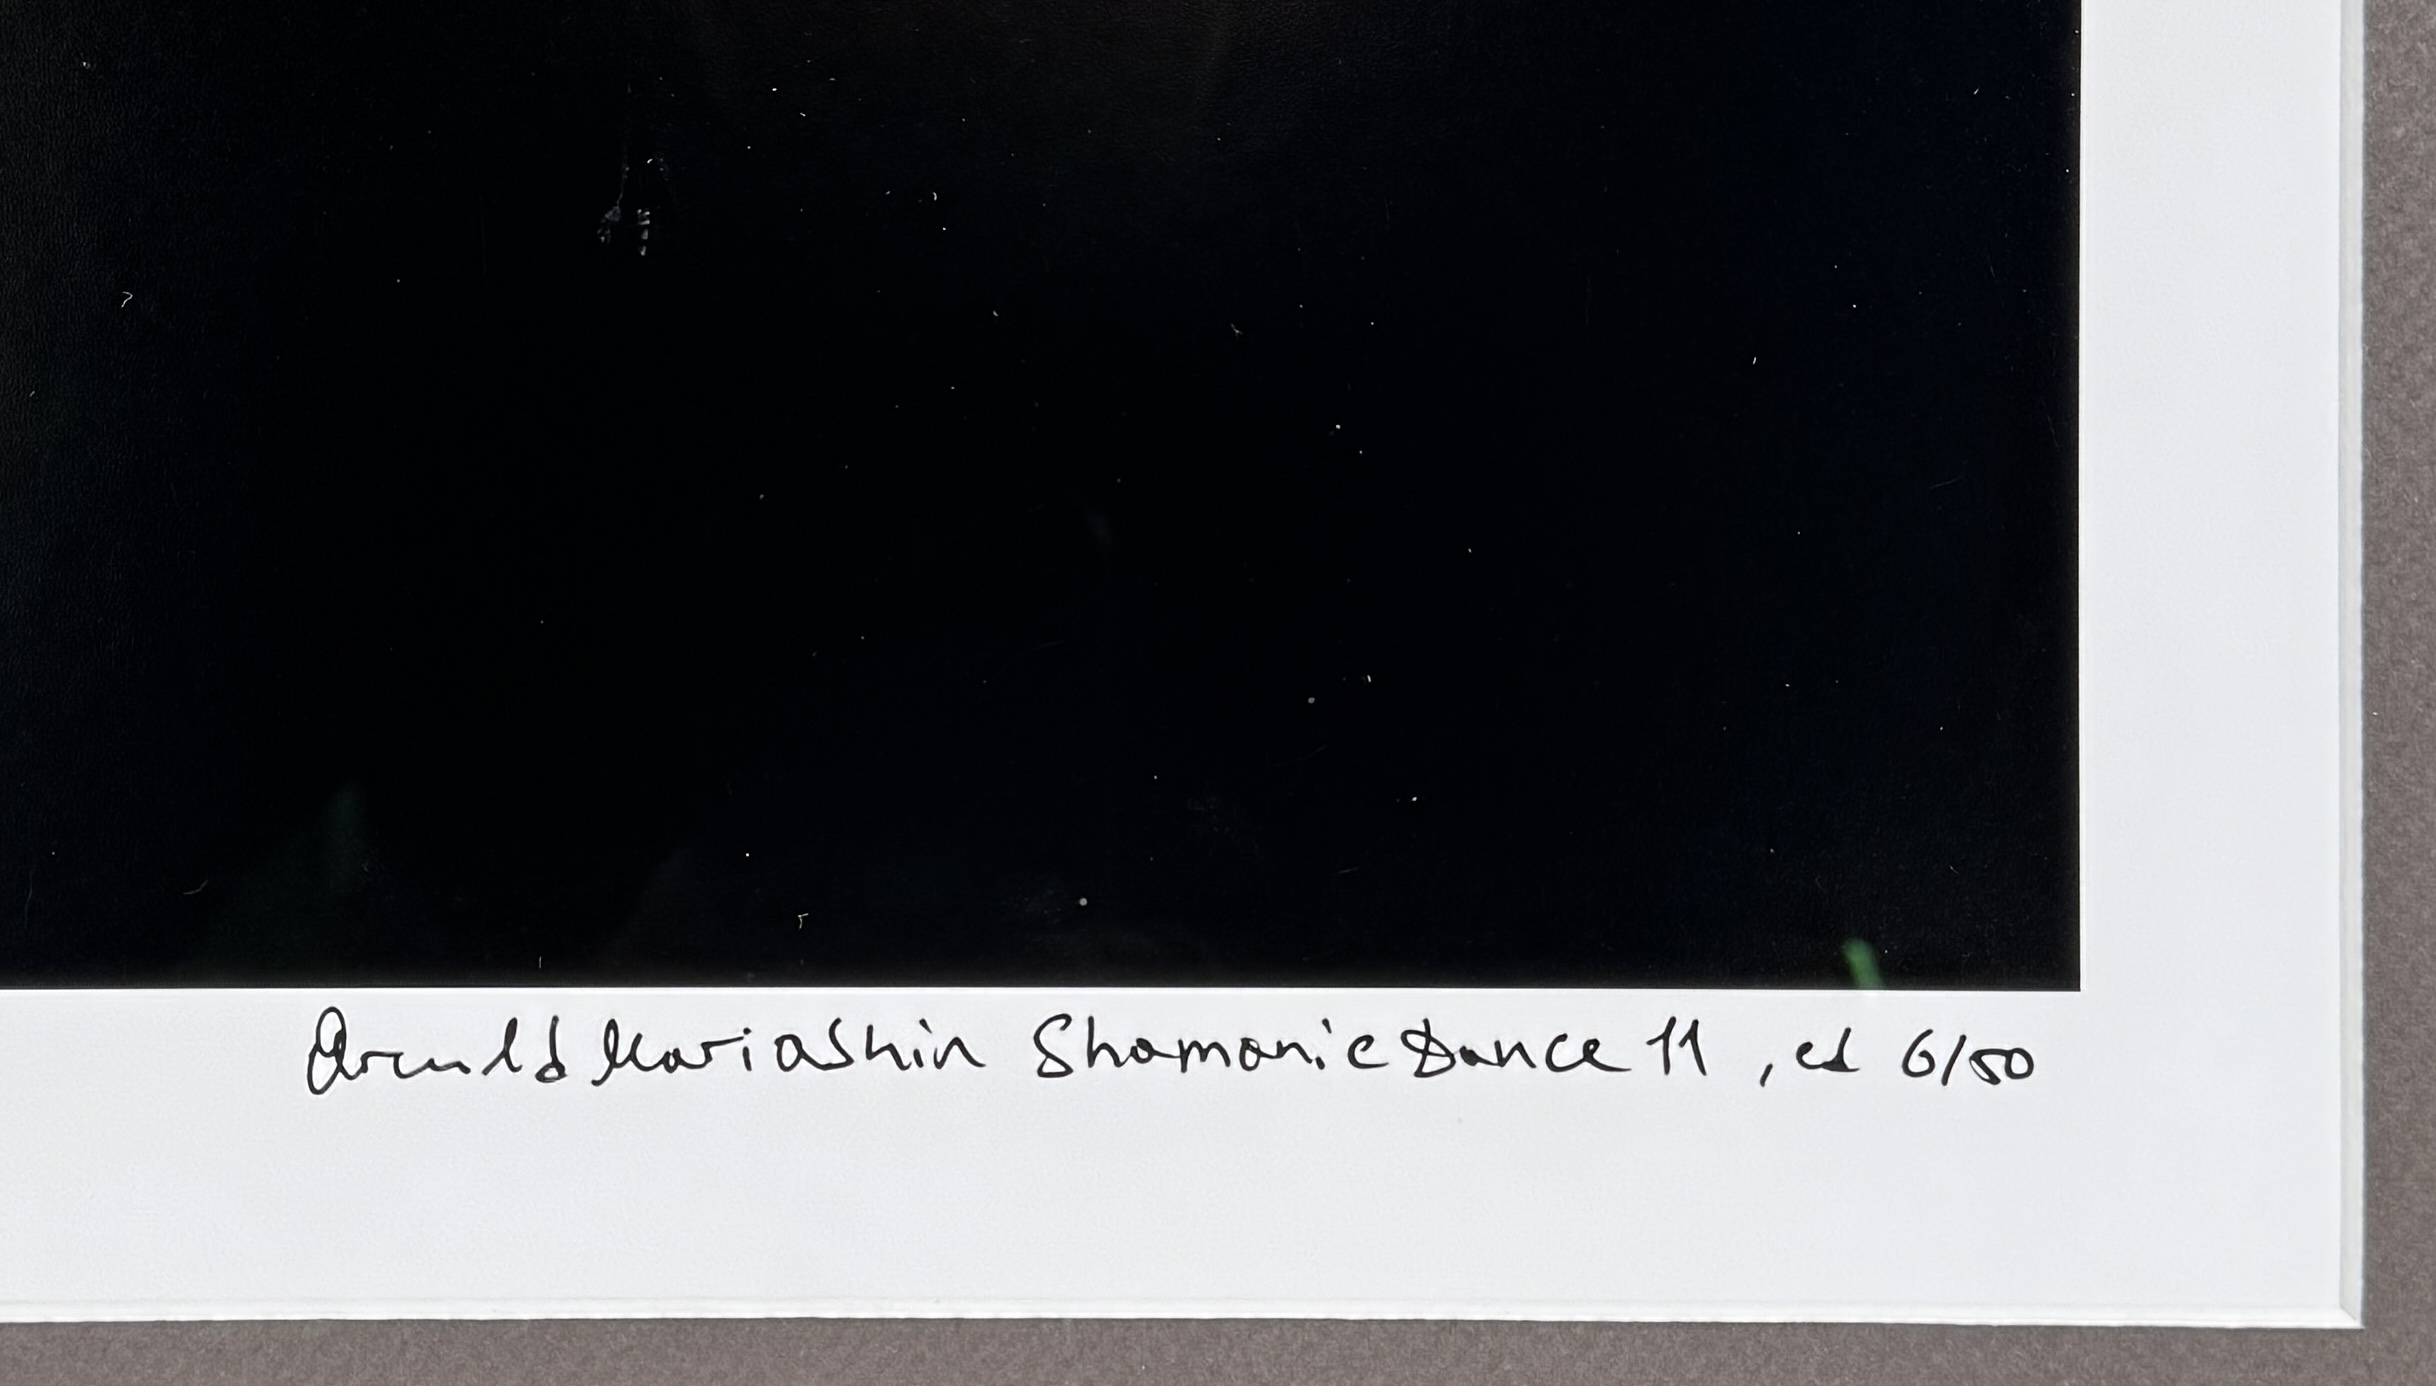 Arnold Kariashin Shamanic Dance 11, ed 6/50